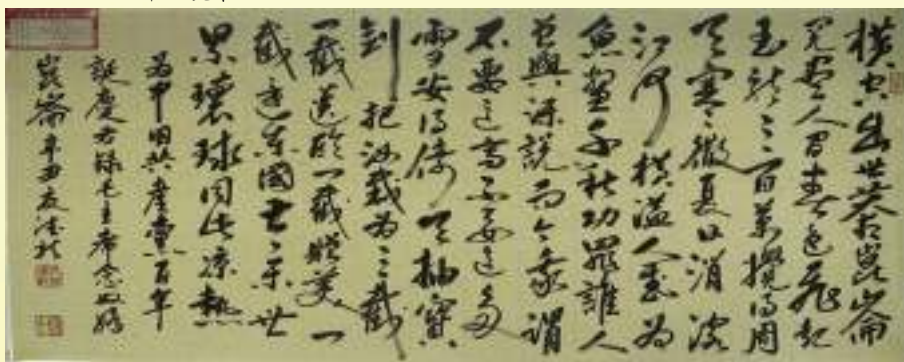 横空出世莽崑崙
阅尽人间春色飞起
玉龙三百万攪得周
天寒徹夏日消溶
江河横溢人或为
魚鳖千秋功罪誰人
曾與评說而今我謂
不要这高不要这多
雪安得倚天抽寶
剑把汝裁为三截
一截遗欧一截赠美一
截还東國太平世
界環球同此凉熱
为中国共產党百年
誕慶书録毛主席念奴娇
崑崙辛丑友